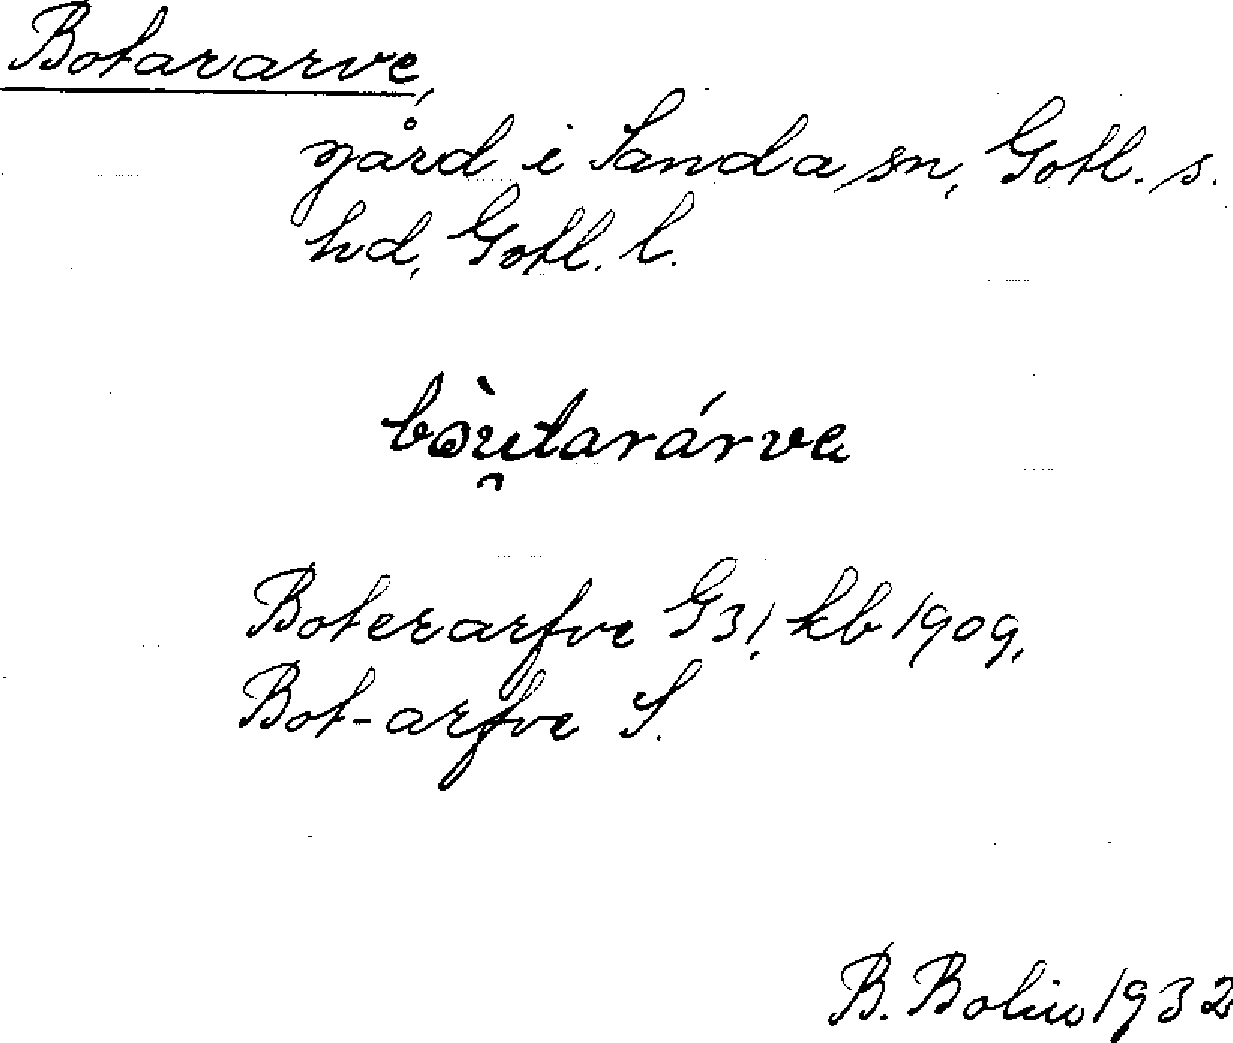 Botararve,
gård i Sanda sn, Gotl. s.
hd, Gotl. l.
bòu̯tarárva
Boterarfve G31, kb 1909,
Bot-arfve S.
B. Bolin 1932